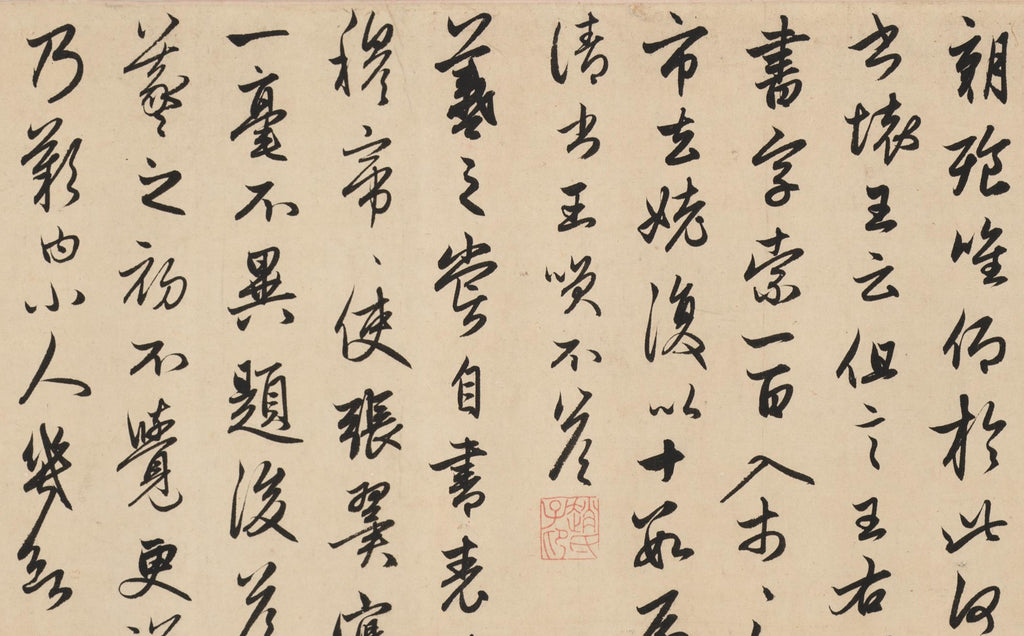 朝飧唯仰於此何
書壞王云但言王右
書字索一百入市、
市去姥復以十數扇
請書王笑不答
趙氏子昂
羲之嘗自書表
穆帝、使張翼寫
一毫不異題後答
羲之初不覺更詳
乃歎曰小人幾欲